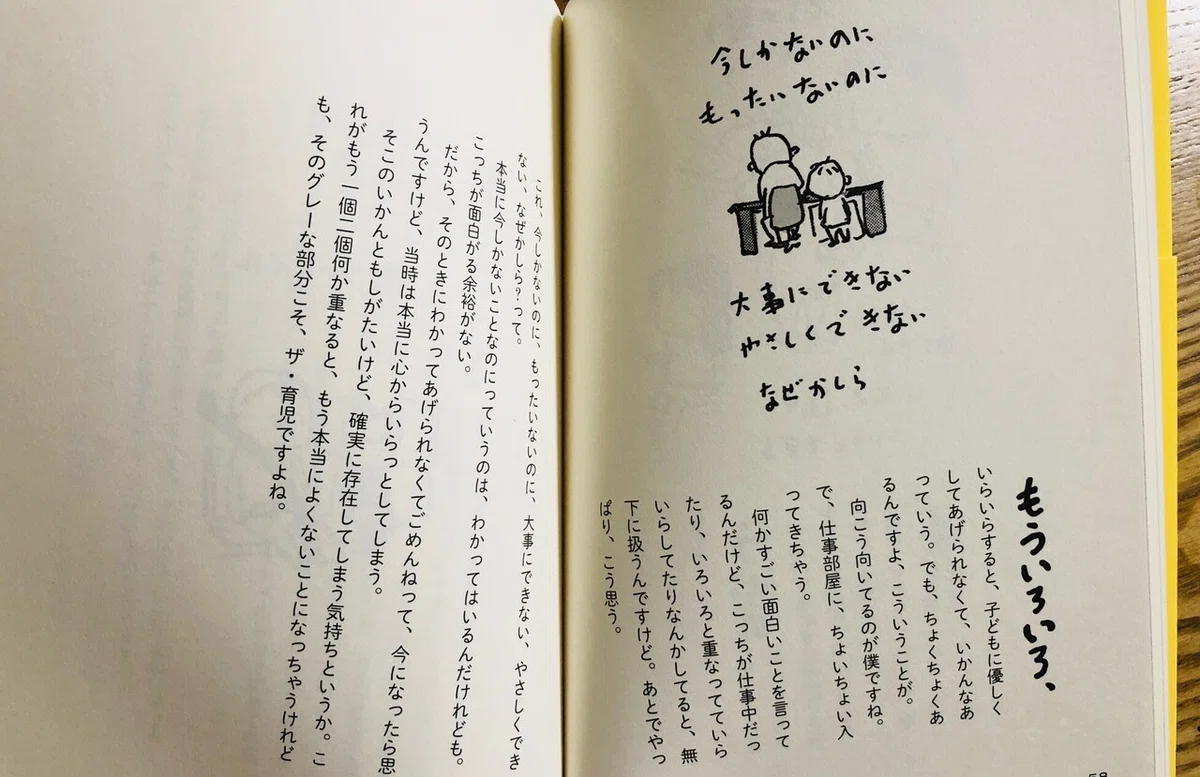 今しかないのに
もったいないのに
大事にできない
やさしくできない
なぜかしら
もういろいろ、
いらいらすると、子どもに優しく
してあげられなくて、いかんなあ
っていう。でも、ちょくちょくあ
るんですよ、こういうことが。
向こう向いてるのが僕ですね。
で、仕事部屋に、ちょいちょい入
ってきちゃう。
何かすごい面白いことを言って
るんだけど、こっちが仕事中だっ
たり、いろいろと重なってていら
いらしてたりなんかしてると、無
下に扱うんですけど。あとでやっ
ぱり、こう思う。
これ、今しかないのに、もったいないのに、大事にできない、やさしくでき
ない、なぜかしら?って。
本当に今しかないことなのにっていうのは、わかってはいるんだけれども。
こっちが面白がる余裕がない。
だから、そのときにわかってあげられなくてごめんねって、今になったら思
うんですけど、当時は本当に心からいらっとしてしまう。
そこのいかんともしがたいけど、確実に存在してしまう気持ちというか。こ
れがもう一個二個何か重なると、もう本当によくないことになっちゃうけれど
も、そのグレーな部分こそ、ザ・育児ですよね。